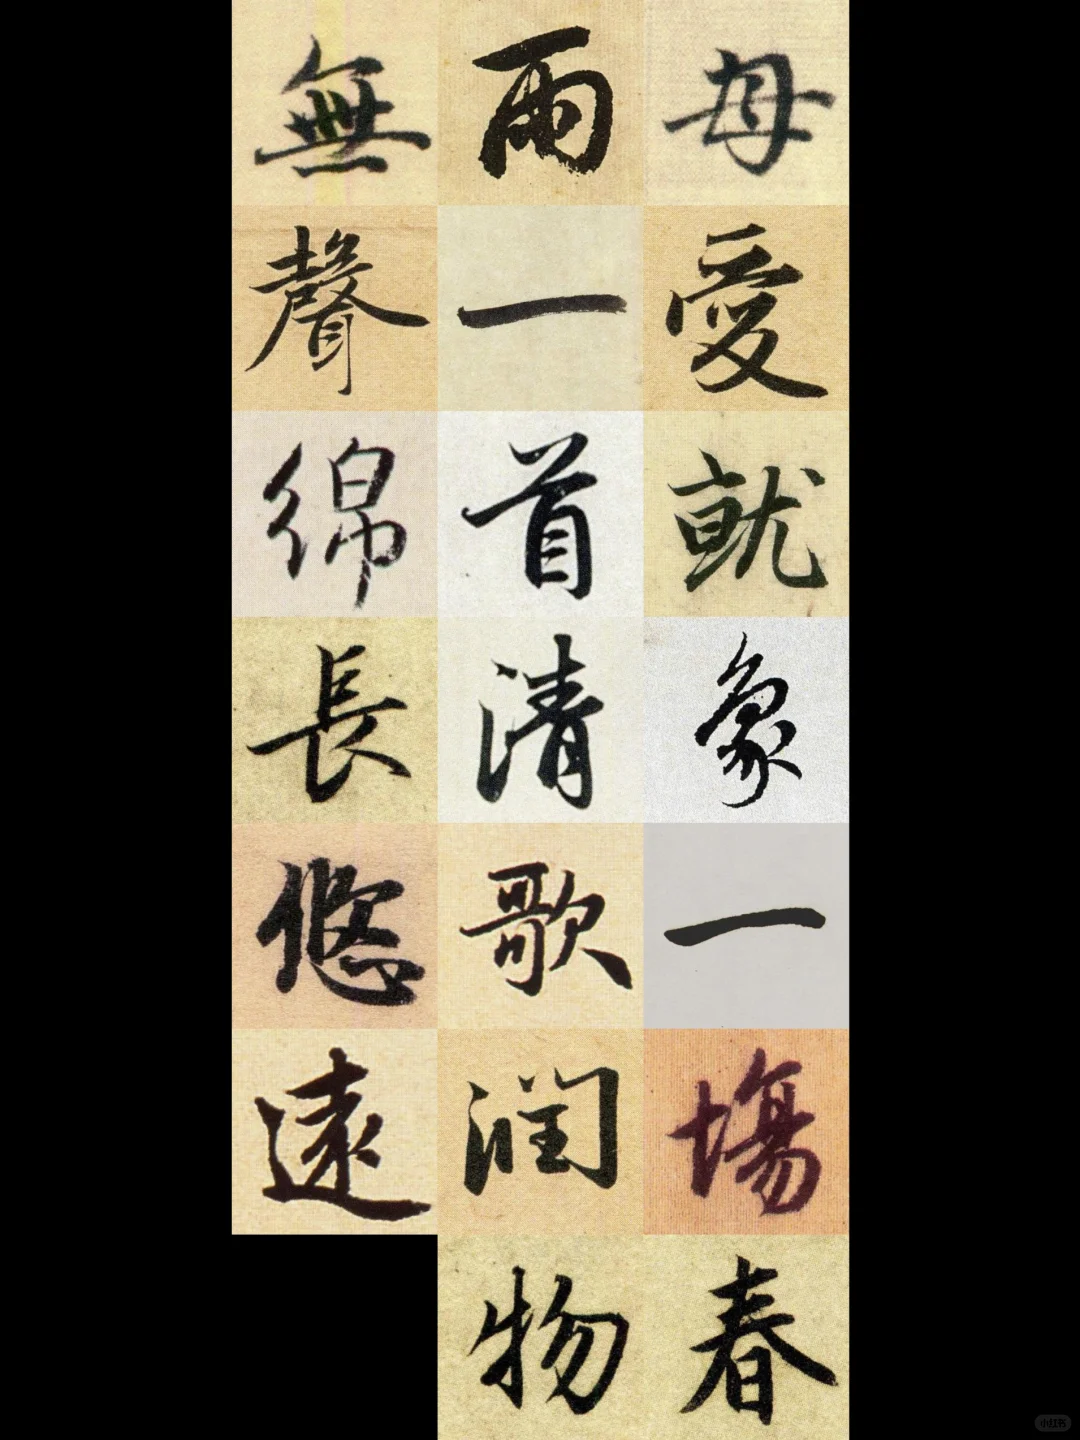 母愛就象一塲春
雨一首清歌润物
無聲綿長悠遠
小红书